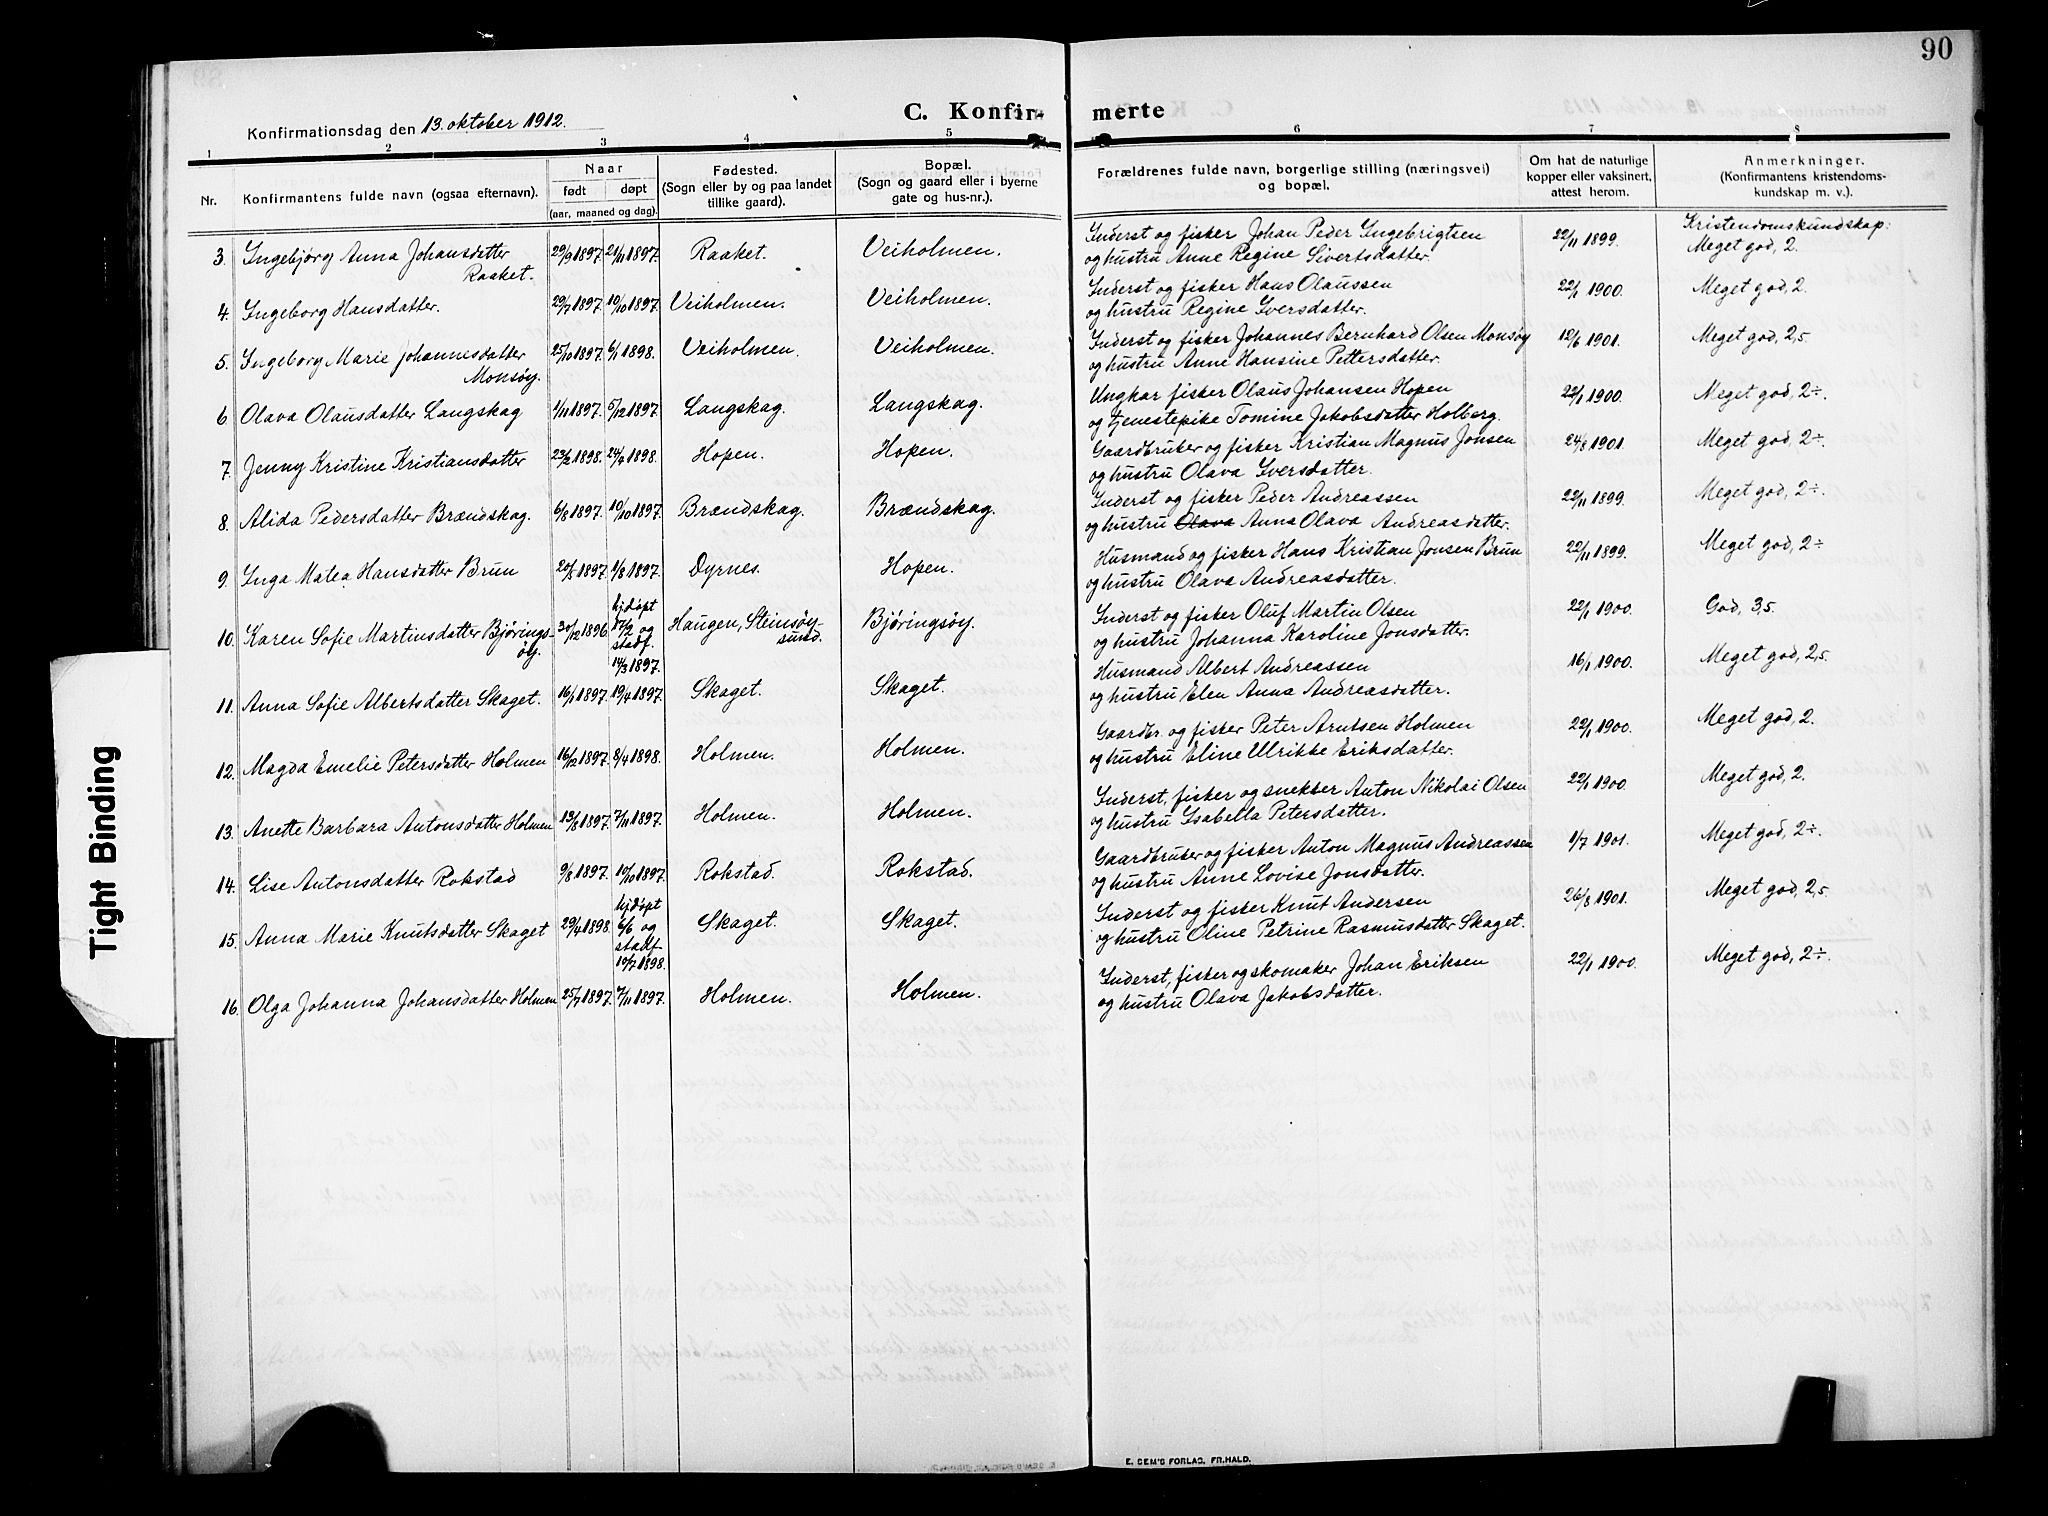 90
Konfirmationsdag den 13. oktober 1912.
C. Konfir-
merte
1 2 3 4 5 6 7 8
Nr.
Konfirmantens fulde navn (ogsaa efternavn).
Naar
født
døpt
(aar, maaned og dag).
Fødested.
(Sogn eller by og paa landet
tillike gaard).
Bopæl.
(Sogn og gaard eller i byerne
gate og hus-nr.).
Forældrenes fulde navn, borgerlige stilling (næringsvei)
og bopæl.
Om hat de naturlige
kopper eller vaksinert,
attest herom.
Anmerkninger.
(Konfirmantens kristendoms-
kundskap m. v.).
3. Ingebjørg Anna Johansdatter 29/9 1897. 21/11 1897. Raaket. Veiholmen. Inderst og fisker Johan Peder Ingebrigtsen 22/11 1899. Kristendomskundskap:
Raaket. og hustru Anne Regine Sivertsdatter. Meget god, 2.
4. Ingeborg Hansdatter. 29/7 1897. 10/10 1897. Veiholmen. Veiholmen. Inderst og fisker Hans Olaussen 22/1 1900. Meget god, 2.
og hustru Regine Iversdatter.
5. Ingeborg Marie Johannesdatter 25/10 1897. 6/1 1898. Veiholmen. Veiholmen. Inderst og fisker Johannes Bernhard Olsen Monsøy 12/6 1901. Meget god, 2,5.
Monsøy. og hustru Anne Hansine Pettersdatter.
6. Olava Olausdatter Langskag 4/11 1897. 5/12 1897. Langskag. Langskag. Ungkar fisker Olaus Johansen Hopen 22/1 1900. Meget god, 2÷.
og tjenestepike Tomine Jakobsdatter Holberg.
7. Jenny Kristine Kristiansdatter 23/2 1898. 24/4 1898. Hopen. Hopen. Gaardbruker og fisker Kristian Magnus Jonsen 24/8 1901. Meget god, 2÷.
og hustru Olava Iversdatter.
8. Alida Pedersdatter Brændskag. 6/8 1897. 10/10 1897. Brændskag. Brændskag. Inderst og fisker Peder Andreassen 22/11 1899. Meget god, 2÷.
og hustru Olava Anna Olava Andreasdatter.
9. Inga Matea Hansdatter Brun 20/5 1897. 1/8 1897. Dyrnes. Hopen. Husmand og fisker Hans Kristian Jonsen Brun 22/11 1899. Meget god, 2÷
og hustru Olava Andreasdatter.
10. Karen Sofie Martinsdatter Bjørings- 30/12 1896. hjdøpt Haugen, Steinsøy- Bjøringsøy. Inderst og fisker Oluf Martin Olsen 22/1 1900. God, 3,5.
øy. 17/2 og sund. og hustru Johanna Karoline Jonsdatter.
stadf.
14/3 1897.
11. Anna Sofie Albertsdatter Skaget. 16/1 1897. 19/4 1897. Skaget. Skaget. Husmand Albert Andreassen 16/1 1900. Meget god, 2,5.
og hustru Elen Anna Andreasdatter.
12. Magda Emelie Petersdatter Holmen 16/12 1897. 8/4 1898. Holmen. Holmen. Gaardbr. og fisker Peter Arntsen Holmen 22/1 1900. Meget god, 2.
og hustru Eline Ulrikke Eriksdatter.
13. Anette Barbara Antonsdatter Holmen 13/8 1897. 7/11 1897. Holmen. Holmen. Inderst, fisker og snekker Anton Nikolai Olsen 22/1 1900. Meget god, 2.
og hustru Isabella Petersdatter.
14. Lise Antonsdatter Rokstad 9/8 1897. 10/10 1897. Rokstad. Rokstad. Gaardbruker og fisker Anton Magnus Andreassen 1/7 1901. Meget god, 2÷.
og hustru Anne Lovise Jonsdatter.
15. Anna Marie Knutsdatter Skaget 29/4 1898. hjdøpt Skaget. Skaget. Inderst og fisker Knut Andersen 26/8 1901. Meget god, 2,5.
6/6 og og hustru Oline Petrine Rasmusdatter Skaget.
stadf.
10/7 1898.
16. Olga Johanna Johansdatter Holmen 25/7 1897. 7/11 1897. Holmen. Holmen. Inderst, fisker og skomaker Johan Eriksen 22/1 1900. Meget god, 2÷.
og hustru Olava Jakobsdatter.
Tight Binding
E. SEM'S FORLAG, FR.HALD.